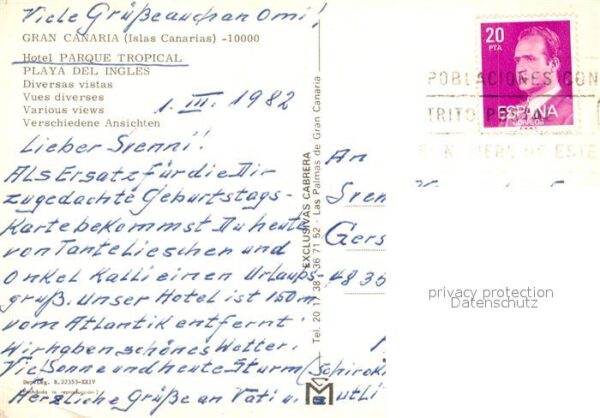 Viele Grüße auch an Omi!
GRAN CANARIA (Islas Canarias) -10000
Hotel PARQUE TROPICAL
PLAYA DEL INGLES
Diversas vistas
Vues diverses
Various views
Verschiedene Ansichten
1. III. 1982
Lieber Svenni!
Als Ersatz für die Dir
zugedachte Geburtstags-
karte bekommst Du heute
von Tante Lieschen und
Onkel Kalli einen Urlaubs-
gruß. Unser Hotel ist 150 m
vom Atlantik entfernt.
Wir haben schönes Wetter.
Viel Sonne und heute Sturm (Schirokko
Herzliche Grüße an Vati u. Mutti
Dep. Leg. B. 22353-XXIV
EXCLUSIVAS CABRERA
Tel. 20 17 38 - 36 71 52 - Las Palmas de Gran Canaria
20
PTA
ESPAÑA
POBLACIONES CON
TRITO POSTAL
NUMERO DE ESTE
An
Sven
Gers
483
privacy protection
Datenschutz
M